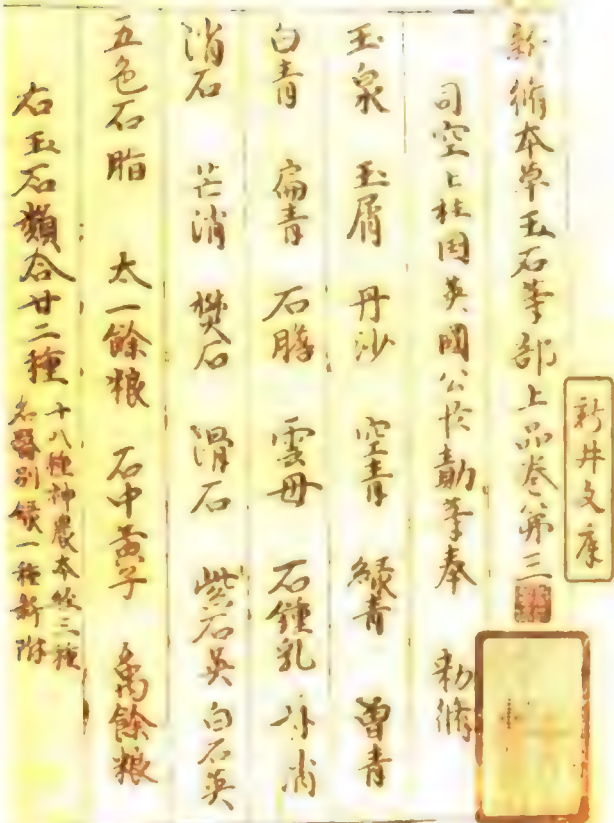 新脩本草玉石等部上品卷第三
司空上柱国英國公臣勣等奉 勑脩
玉泉 玉屑 丹沙 空青 緑青 曽青
白青 扁青 石膽 雲母 石鍾乳 朴消
消石 芒消 礬石 滑石 紫石英 白石英
五色石脂 太一餘粮 石中黄子 禹餘粮
右玉石類合廿二種 十八種神農本經三種
名醫別録一種新附
新井文庫